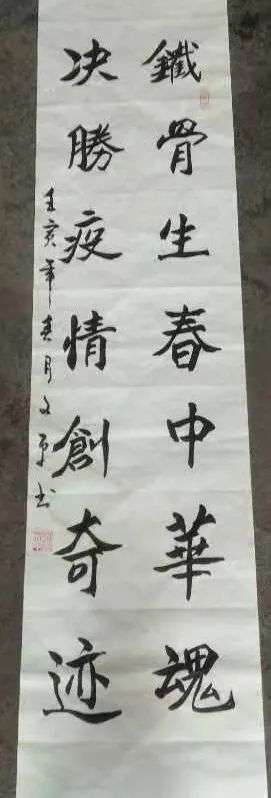 鐵骨生春中華魂
决勝疫情創奇迹
壬寅年春月文平书